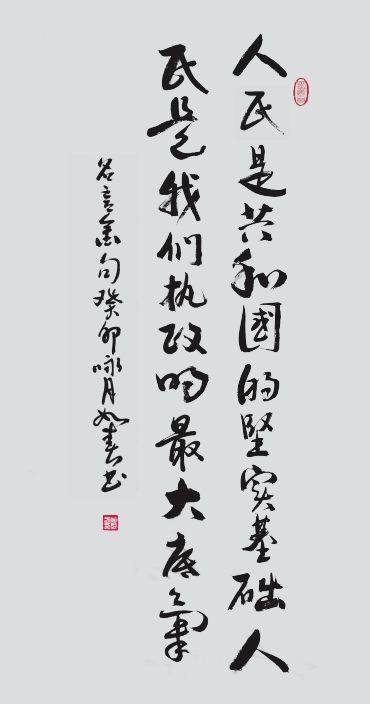 人民是共和國的堅实基础人
民是我们执政的最大底氣
名言金句癸卯咏月如春书